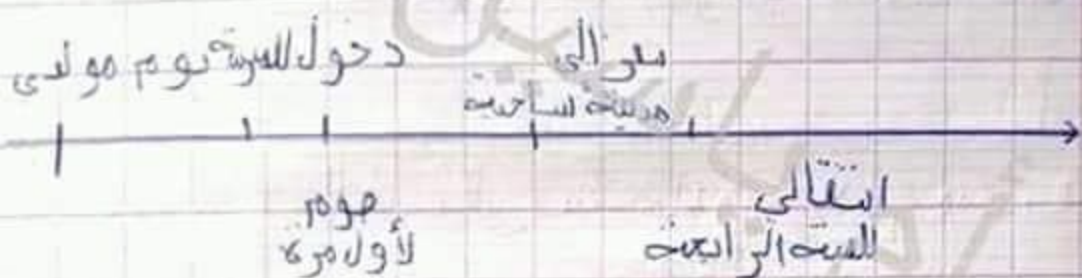 يوم مولدي
دخول للمدرسة
سفر إلى
مدينة ساحية
صوم
لأول مرة
انتقالي
للسنة الرابعة